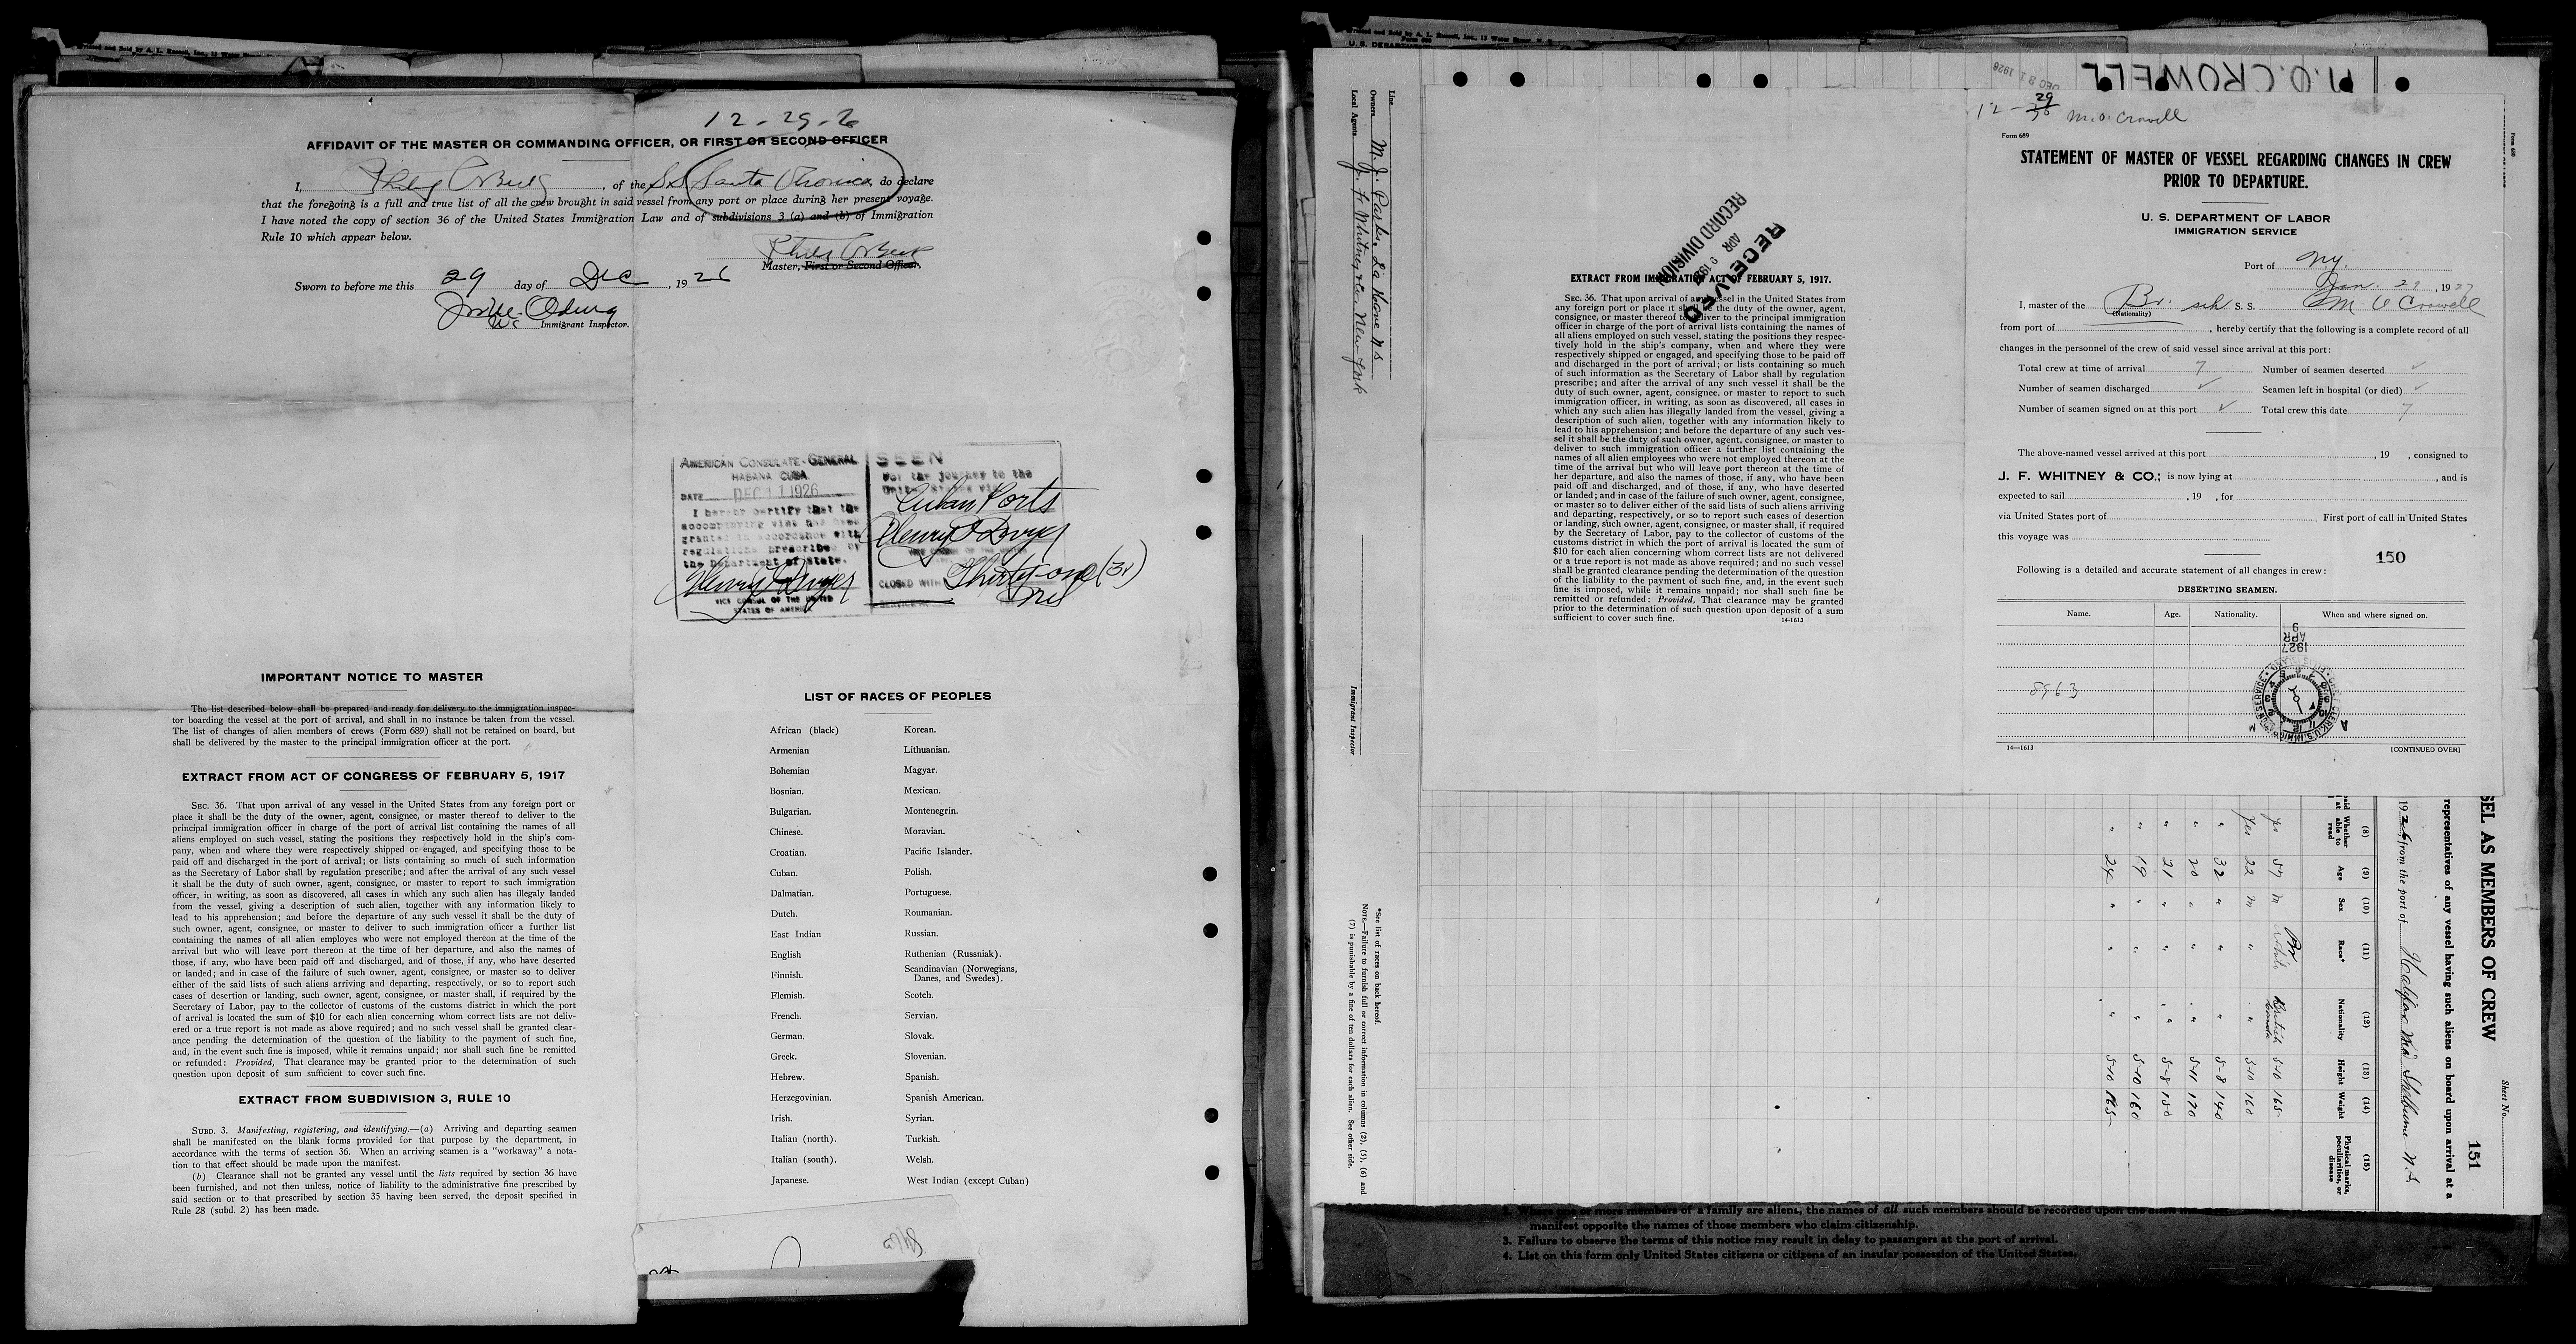 12-29-26
AFFIDAVIT OF THE MASTER OR COMMANDING OFFICER, OR FIRST OR SECOND OFFICER
I, of the SS Santa Veronica, do declare
that the foregoing is a full and true list of all the crew brought in said vessel from any port or place during her present voyage.
I have noted the copy of section 36 of the United States Immigration Law and of subdivisions 3 (a) and (b) of Immigration
Rule 10 which appear below.
Master, First or Second Officer.
Sworn to before me this 29 day of Dec, 1926
Immigrant Inspector.
AMERICAN CONSULATE-GENERAL
HABANA CUBA
DATE DEC 11 1926
I hereby certify that the
accompanying visa has been
granted in accordance with
regulations prescribed by
the Department of State.
VICE CONSUL OF THE UNITED
STATES OF AMERICA
SEEN
For the journey to the
United States via
Cuban Ports
CLOSED WITH Thirty-one (31)
IMPORTANT NOTICE TO MASTER
The list described below shall be prepared and ready for delivery to the immigration inspec-
tor boarding the vessel at the port of arrival, and shall in no instance be taken from the vessel.
The list of changes of alien members of crews (Form 689) shall not be retained on board, but
shall be delivered by the master to the principal immigration officer at the port.
EXTRACT FROM ACT OF CONGRESS OF FEBRUARY 5, 1917
SEC. 36. That upon arrival of any vessel in the United States from any foreign port or
place it shall be the duty of the owner, agent, consignee, or master thereof to deliver to the
principal immigration officer in charge of the port of arrival list containing the names of all
aliens employed on such vessel, stating the positions they respectively hold in the ship's com-
pany, when and where they were respectively shipped or engaged, and specifying those to be
paid off and discharged in the port of arrival; or lists containing so much of such information
as the Secretary of Labor shall by regulation prescribe; and after the arrival of any such vessel
it shall be the duty of such owner, agent, consignee, or master to report to such immigration
officer, in writing, as soon as discovered, all cases in which any such alien has illegaly landed
from the vessel, giving a description of such alien, together with any information likely to
lead to his apprehension; and before the departure of any such vessel it shall be the duty of
such owner, agent, consignee, or master to deliver to such immigration officer a further list
containing the names of all alien employes who were not employed thereon at the time of the
arrival but who will leave port thereon at the time of her departure, and also the names of
those, if any, who have been paid off and discharged, and of those, if any, who have deserted
or landed; and in case of the failure of such owner, agent, consignee, or master so to deliver
either of the said lists of such aliens arriving and departing, respectively, or so to report such
cases of desertion or landing, such owner, agent, consignee, or master shall, if required by the
Secretary of Labor, pay to the collector of customs of the customs district in which the port
of arrival is located the sum of $10 for each alien concerning whom correct lists are not deliv-
ered or a true report is not made as above required; and no such vessel shall be granted clear-
ance pending the determination of the question of the liability to the payment of such fine,
and, in the event such fine is imposed, while it remains unpaid; nor shall such fine be remitted
or refunded: Provided, That clearance may be granted prior to the determination of such
question upon deposit of sum sufficient to cover such fine.
EXTRACT FROM SUBDIVISION 3, RULE 10
SUBD. 3. Manifesting, registering, and identifying.—(a) Arriving and departing seamen
shall be manifested on the blank forms provided for that purpose by the department, in
accordance with the terms of section 36. When an arriving seaman is a "workaway" a nota-
tion to that effect should be made upon the manifest.
(b) Clearance shall not be granted any vessel until the lists required by section 36 have
been furnished, and not then unless, notice of liability to the administrative fine prescribed by
said section or to that prescribed by section 35 having been served, the deposit specified in
Rule 28 (subd. 2) has been made.
LIST OF RACES OF PEOPLES
African (black) Korean.
Armenian Lithuanian.
Bohemian Magyar.
Bosnian. Mexican.
Bulgarian. Montenegrin.
Chinese. Moravian.
Croatian. Pacific Islander.
Cuban. Polish.
Dalmatian. Portuguese.
Dutch. Roumanian.
East Indian Russian.
English Ruthenian (Russniak).
Finnish. Scandinavian (Norwegians,
Danes, and Swedes).
Flemish. Scotch.
French. Servian.
German. Slovak.
Greek. Slovenian.
Hebrew. Spanish.
Herzegovinian. Spanish American.
Irish. Syrian.
Italian (north). Turkish.
Italian (south). Welsh.
Japanese. West Indian (except Cuban)
Printed and Sold by A. L. Russell, Inc., 12 Water Street
Form 680
U. S. DEPARTMENT
Line
Owners M. J. Parker, La Have N S
Local Agents J. F. Whitney & Co. New York
Immigrant Inspector
*See list of races on back hereof.
NOTE—Failure to furnish full or correct information in columns (2), (5), (6) and
(7) is punishable by a fine of ten dollars for each alien. See other side.
RECEIVED
APR 9 1927
RECORD DIVISION
EXTRACT FROM IMMIGRATION ACT OF FEBRUARY 5, 1917.
SEC. 36. That upon arrival of any vessel in the United States from
any foreign port or place it shall be the duty of the owner, agent,
consignee, or master thereof to deliver to the principal immigration
officer in charge of the port of arrival lists containing the names of
all aliens employed on such vessel, stating the positions they respec-
tively hold in the ship's company, when and where they were
respectively shipped or engaged, and specifying those to be paid off
and discharged in the port of arrival; or lists containing so much
of such information as the Secretary of Labor shall by regulation
prescribe; and after the arrival of any such vessel it shall be the
duty of such owner, agent, consignee, or master to report to such
immigration officer, in writing, as soon as discovered, all cases in
which any such alien has illegally landed from the vessel, giving a
description of such alien, together with any information likely to
lead to his apprehension; and before the departure of any such ves-
sel it shall be the duty of such owner, agent, consignee, or master to
deliver to such immigration officer a further list containing the
names of all alien employees who were not employed thereon at the
time of the arrival but who will leave port thereon at the time of
her departure, and also the names of those, if any, who have been
paid off and discharged, and of those, if any, who have deserted
or landed; and in case of the failure of such owner, agent, consignee,
or master so to deliver either of the said lists of such aliens arriving
and departing, respectively, or so to report such cases of desertion
or landing, such owner, agent, consignee, or master shall, if required
by the Secretary of Labor, pay to the collector of customs of the
customs district in which the port of arrival is located the sum of
$10 for each alien concerning whom correct lists are not delivered
or a true report is not made as above required; and no such vessel
shall be granted clearance pending the determination of the question
of the liability to the payment of such fine, and, in the event such
fine is imposed, while it remains unpaid; nor shall such fine be
remitted or refunded: Provided, That clearance may be granted
prior to the determination of such question upon deposit of a sum
sufficient to cover such fine.
14-1613
M.O. CROWELL
DEC 31 1926
12-29 M.O. Crowell
Form 689
STATEMENT OF MASTER OF VESSEL REGARDING CHANGES IN CREW
PRIOR TO DEPARTURE.
U. S. DEPARTMENT OF LABOR
IMMIGRATION SERVICE
Port of NY.
Jan. 29, 1927
I, master of the Br. sch S. S. M O Crowell
(Nationality)
from port of , hereby certify that the following is a complete record of all
changes in the personnel of the crew of said vessel since arrival at this port:
Total crew at time of arrival 7 Number of seamen deserted ✓
Number of seamen discharged ✓ Seamen left in hospital (or died) ✓
Number of seamen signed on at this port ✓ Total crew this date 7
The above-named vessel arrived at this port , 19 , consigned to
J. F. WHITNEY & CO.; is now lying at , and is
expected to sail , 19 , for
via United States port of . First port of call in United States
this voyage was
150
Following is a detailed and accurate statement of all changes in crew:
DESERTING SEAMEN.
Name. Age. Nationality. When and where signed on.
1927
APR
9
8963
14—1613 [CONTINUED OVER]
Sheet No. 151
SEL AS MEMBERS OF CREW
representatives of any vessel having such aliens on board upon arrival at a
1926, from the port of Halifax Shelburne N.S.
(8) (9) (10) (11) (12) (13) (14) (15)
Whether able to read Age Sex Race* Nationality Height Weight Physical marks, peculiarities, or disease
yes 57 M White British 5-10 165
yes 22 M " " 5-10 160
" 32 " " " 5-8 140
" 20 " " " 5-11 170
" 21 " " " 5-8 150
" 19 " " " 5-10 160
" 24 " " " 5-10 165
2. Where one or more members of a family are aliens, the names of all such members should be recorded upon the alien
manifest opposite the names of those members who claim citizenship.
3. Failure to observe the terms of this notice may result in delay to passengers at the port of arrival.
4. List on this form only United States citizens or citizens of an insular possession of the United States.